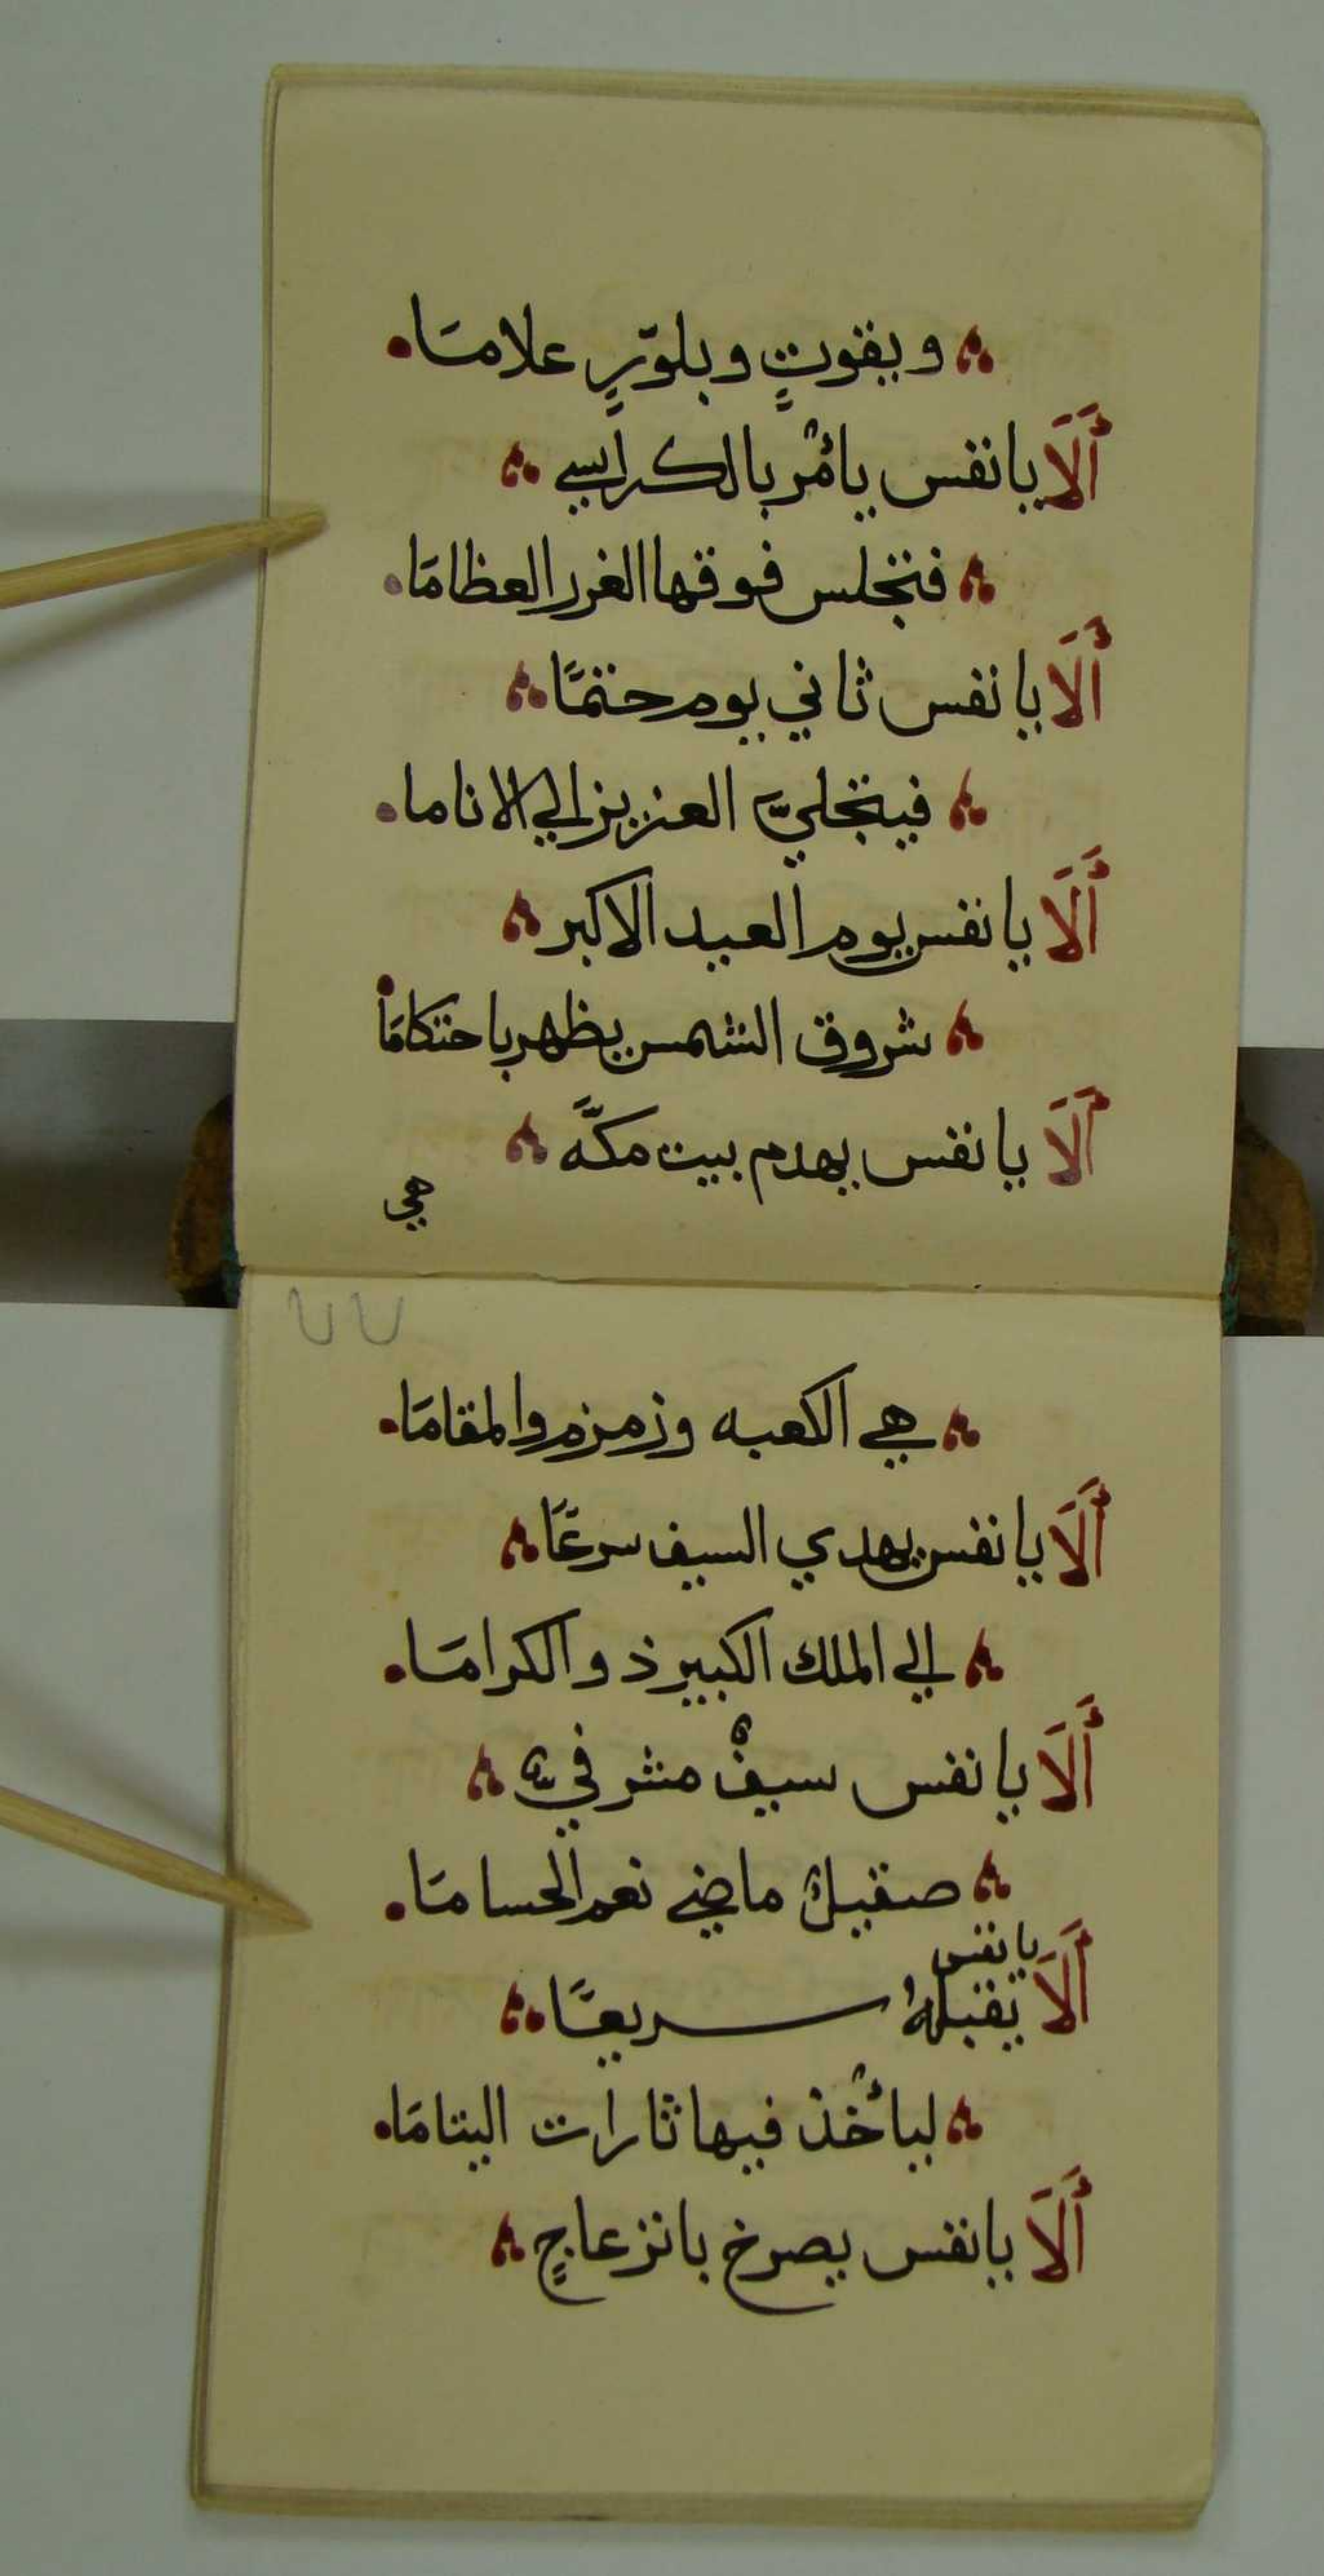 ويقوتٍ وبلّورٍ علامَا
أَلَا يا نفس يأمُر بالكراسي
فتجلس فوقها الغرر العظامَا
أَلَا يا نفس ثاني يوم حتمًا
فيتجليّ العزيز الي الاناما
أَلَا يا نفس يوم العيد الاكبر
شروق الشمس يظهر باحتكامَا
أَلَا يا نفس يهدم بيت مكّه
هي
٧٧
هي الكعبه وزمزم والمقامَا
أَلَا يا نفس يهدي السيف سرعًا
الي الملك الكبير ذو الكرامَا
أَلَا يا نفس سيفٌ مشرفيّ
صقيلٌ ماضي نعم الحسامَا
أَلَا يا نفس يقبلها سريعًا
ليأخُذ فيها ثارات اليتامَا
أَلَا يا نفس يصرخ بانزعاجٍ